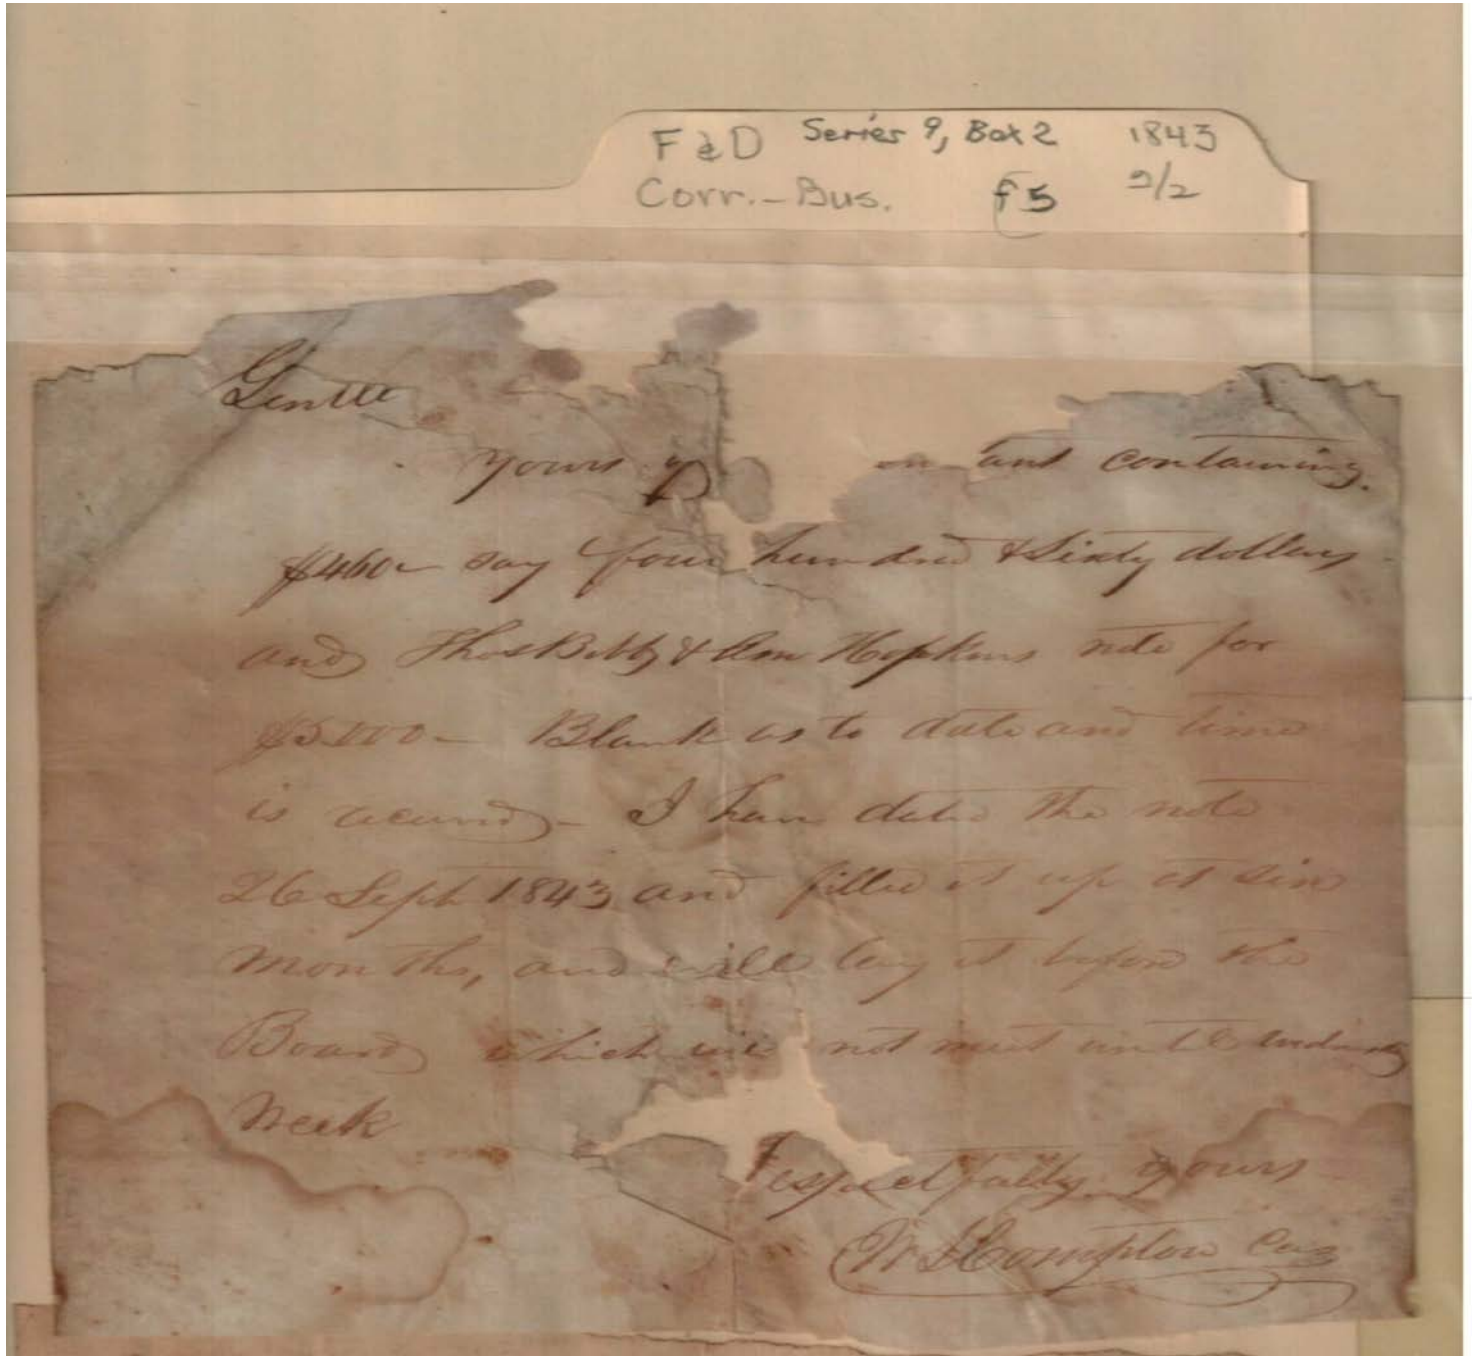 F & D Series 9, Box 2 1843
Corr. - Bus. f5 9/2
Gentle
Yours and containing
$460 - say four hundred & Sixty dollars
and Thos Bibby & Hopkins note for
$5000 - Blank as to date and time
is received - I have dated the note
26 Sept 1843 and filled it up at six
months, and will lay it before the
Board which will not meet until ending
Week
respectfully yours
Compton Cas